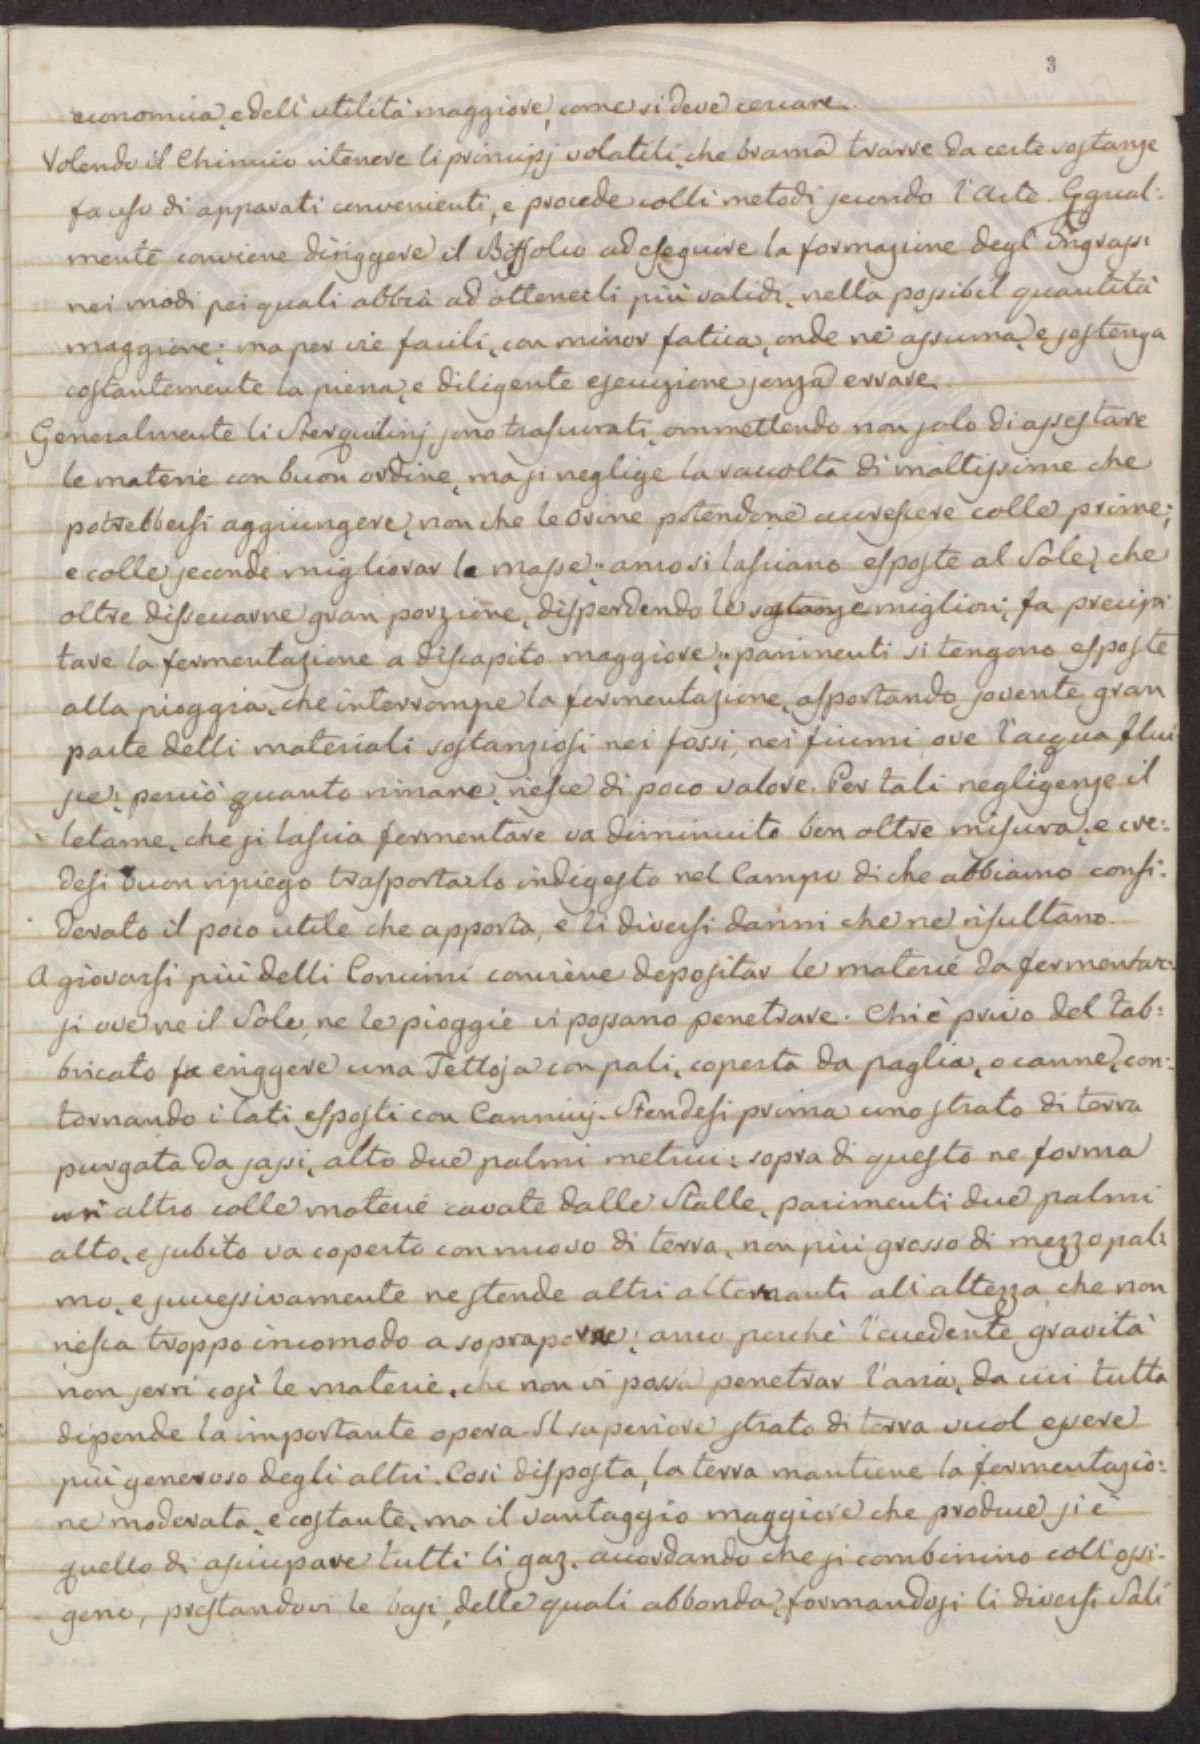 3
economica, e dell'utilità maggiore, come si deve cercare.
Volendo il Chimico ritenere li principj volatili, che brama trarre da certe sostanze
fa uso di apparati convenienti, e procede colli metodi secondo l'Arte. Egual:
mente conviene diriggere il Biffolco ad eseguire la formazione degl'Ingrassi
nei modi pei quali abbia ad ottenerli più validi, nella possibil quantità
maggiore; ma per vie facili, con minor fatica, onde ne assuma, e sostenga
costantemente la piena, e diligente esecuzione senza errare.
Generalmente li Sterquilinj sono trascurati, ommettendo non solo di assestare
le materie con buon ordine, ma si neglige la raccolta di moltissime che
potrebbersi aggiungere, non che le Orine potendone accrescere colle prime;
e colle seconde migliorar le masse: anco si lasciano esposte al Sole, che
oltre disseccarne gran porzione, disperdendo le sostanze migliori, fa precipi
tare la fermentazione a discapito maggiore: parimenti si tengono esposte
alla pioggia, che interrompe la fermentazione, asportando sovente gran
parte delli materiali sostanziosi nei fossi, nei fiumi, ove l'acqua flui
sce; perciò quanto rimane, riesce di poco valore. Per tali negligenze il
letame, che si lascia fermentare va diminuito ben oltre misura, e cre:
desi buon ripiego trasportarlo indigesto nel Campo di che abbiamo consi:
derato il poco utile che apporta, e li diversi danni che ne risultano.
A giovarsi più delli Concimi conviene depositar le materie da fermentar:
si ove ne il Sole, ne le pioggie vi possano penetrare. Chi è privo del fab:
bricato fa eriggere una Tettoja con pali, coperta da paglia, o canne, con:
tornando i lati esposti con Cannicj. Stendesi prima uno strato di terra
purgata da sassi, alto due palmi metrici: sopra di questo ne forma
un altro colle materie cavate dalle Stalle, parimenti due palmi
alto, e subito va coperto con nuovo di terra, non più grosso di mezzo pal:
mo, e successivamente ne stende altri alternanti all'altezza, che non
riesca troppo incomodo a sopraporne; anco perchè l'eccedente gravità
non serri così le materie, che non vi possa penetrar l'aria, da cui tutta
dipende la importante opera. Il superiore strato di terra vuol essere
più generoso degli altri. Così disposta, la terra mantiene la fermentazio:
ne moderata, e costante, ma il vantaggio maggiore che produce si è
quello di assiepare tutti li gaz, accordando che si combinino coll'ossi-
geno, prestandovi le basi, delle quali abbonda, formandosi li diversi Sali